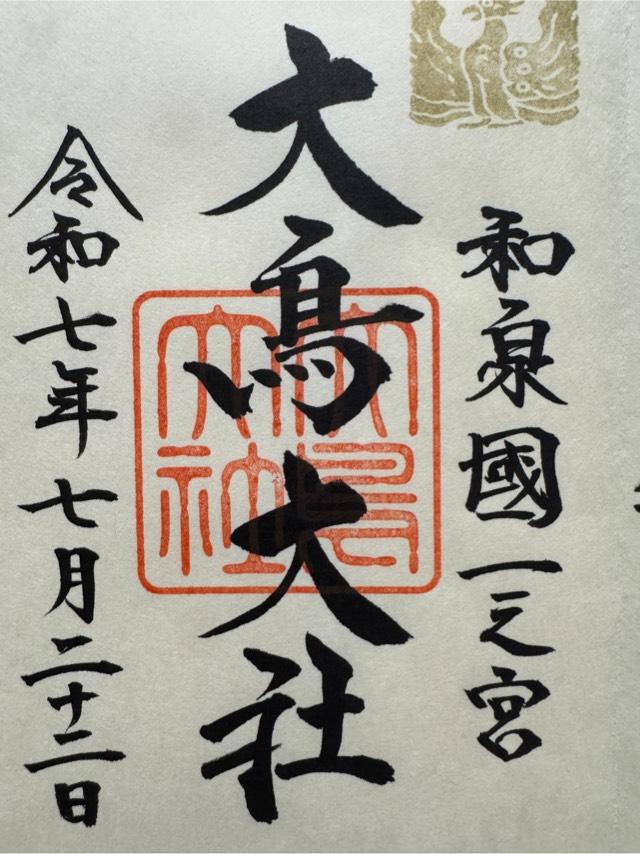 和泉國一之宮
大鳥大社
大鳥大社
令和七年七月二十二日